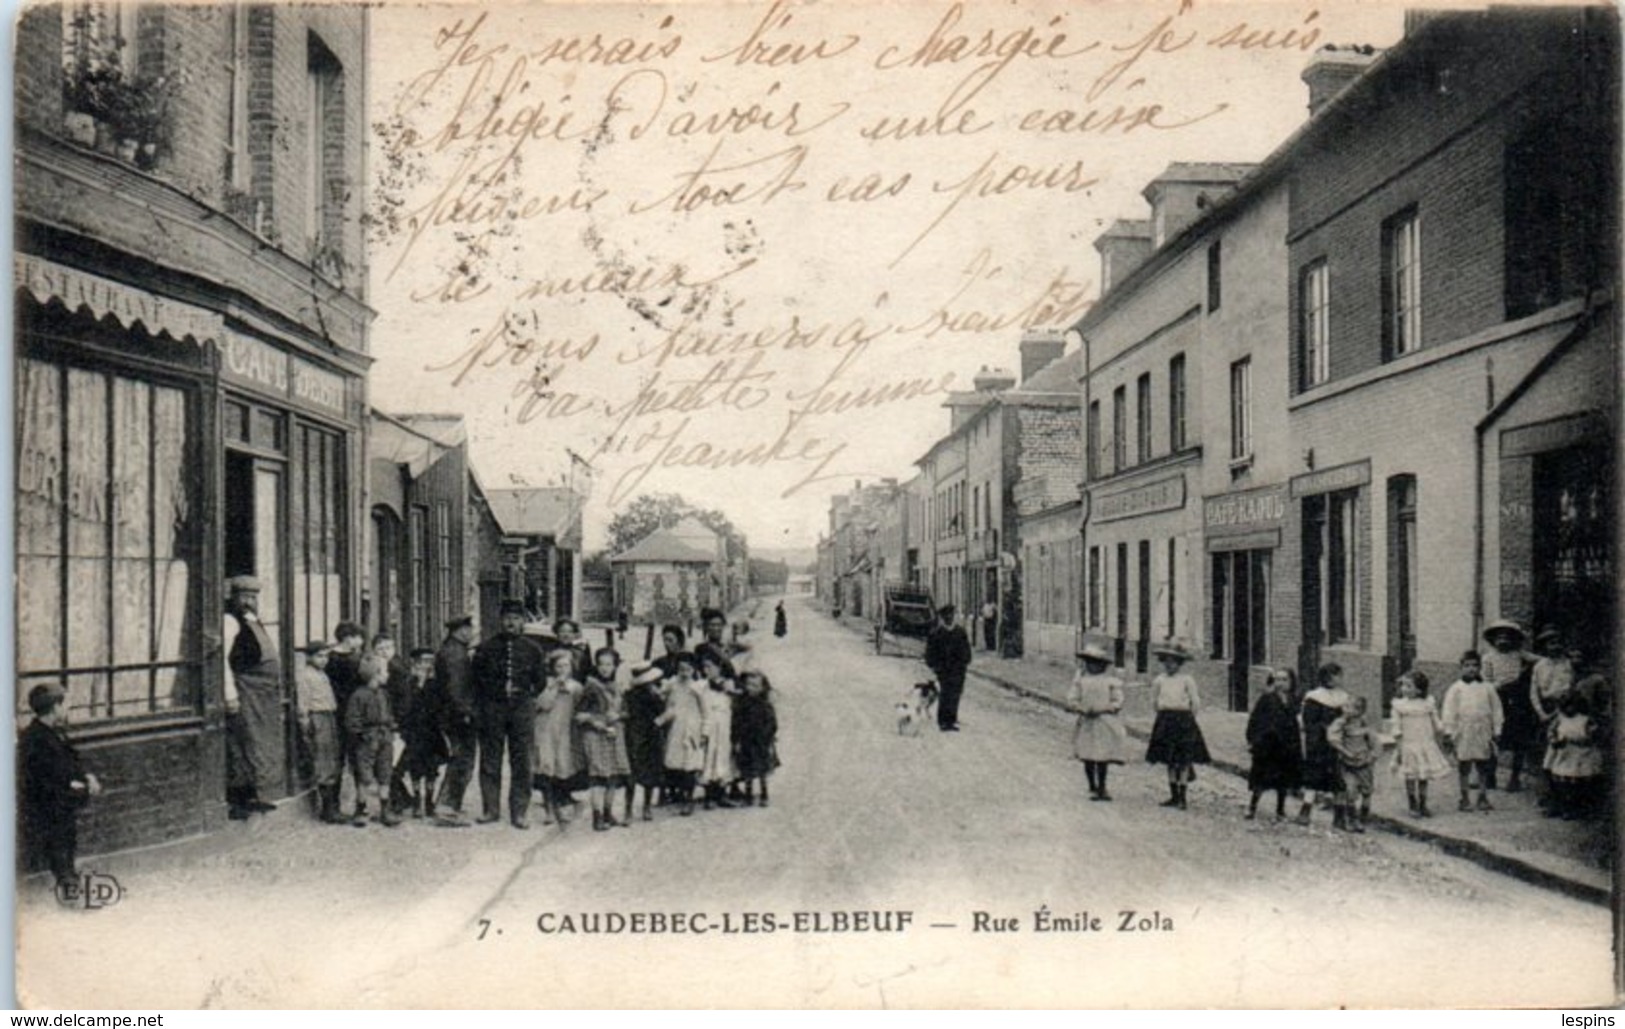 Je serais bien chargée je suis
obligée d'avoir une caisse
fais en tout cas pour
le mieux
bons baisers à bientôt
Ta petite femme
"Jeanne
RESTAURANT
CAFÉ
CAFÉ RAOUL
E.L.D
7. CAUDEBEC-LES-ELBEUF — Rue Émile Zola
www.delcampe.net
lespins